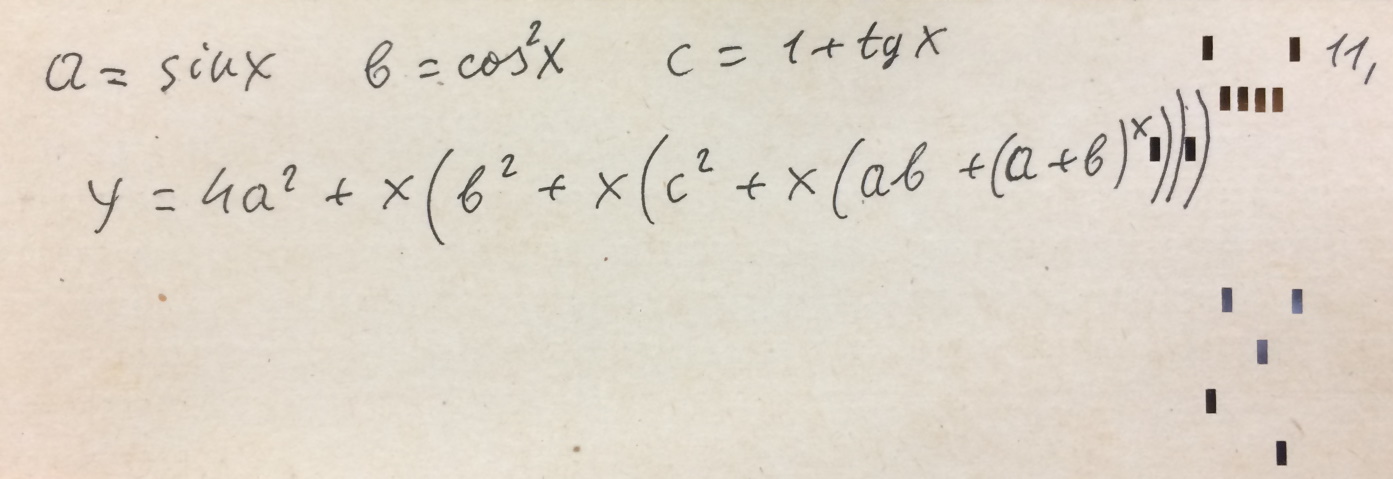 a = sinx в = cos²x c = 1 + tg x 11,
y = 4a² + x(в² + x(c² + x(aв + (a + в)ˣ)))